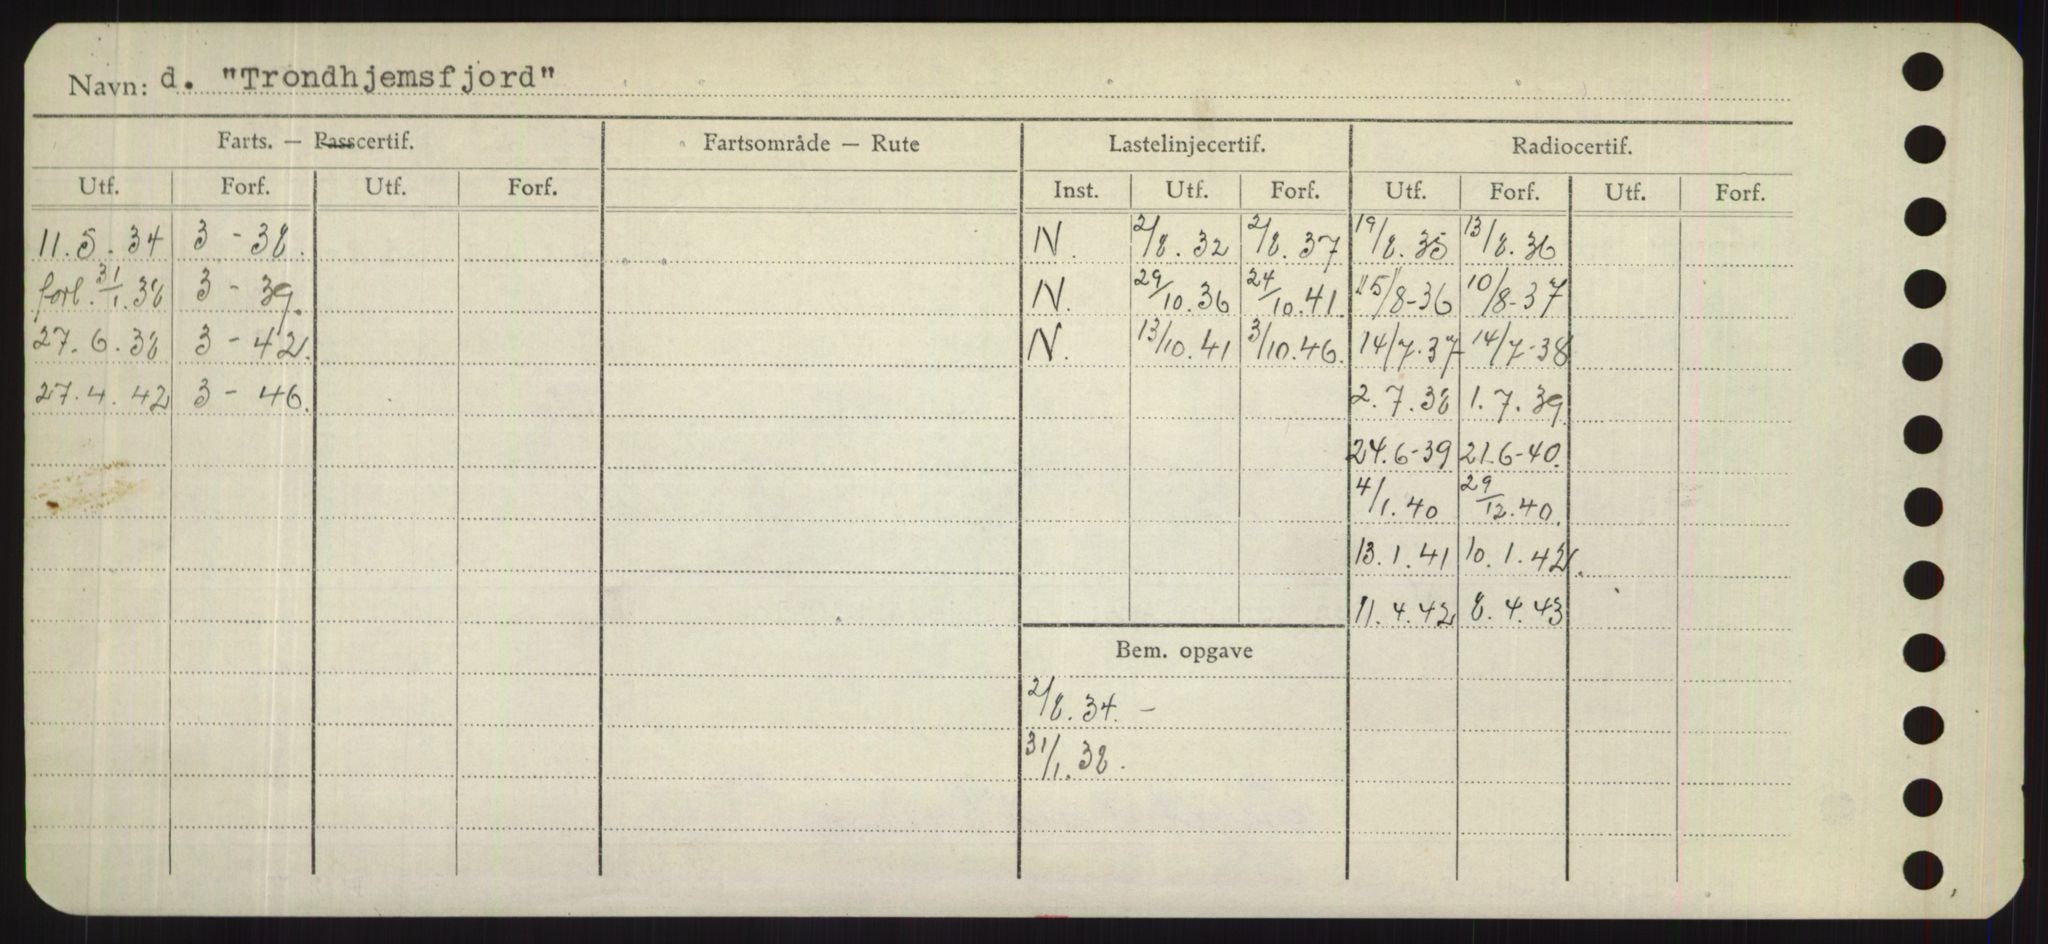 Navn: d. "Trondhjemsfjord"
Farts. — Passcertif. Fartsområde — Rute Lastelinjecertif. Radiocertif.
Utf. Forf. Utf. Forf. Inst. Utf. Forf. Utf. Forf. Utf. Forf.
11.5.34 3 - 38. N. 2/8.32 2/8.37 19/8.35 13/8.36
forl. 31/1.38 3 - 39. N. 29/10.36 24/10.41. 15/8-36 10/8-37
27.6.38 3 - 42. N. 13/10.41 3/10.46. 14/7.37 14/7-38
27.4.42 3 - 46. 2.7.38 1.7.39
24.6-39 21.6-40.
4/1.40 29/12.40.
13.1.41 10.1.42.
11.4.42 8.4.43
Bem. opgave
2/8.34. -
31/1.38.